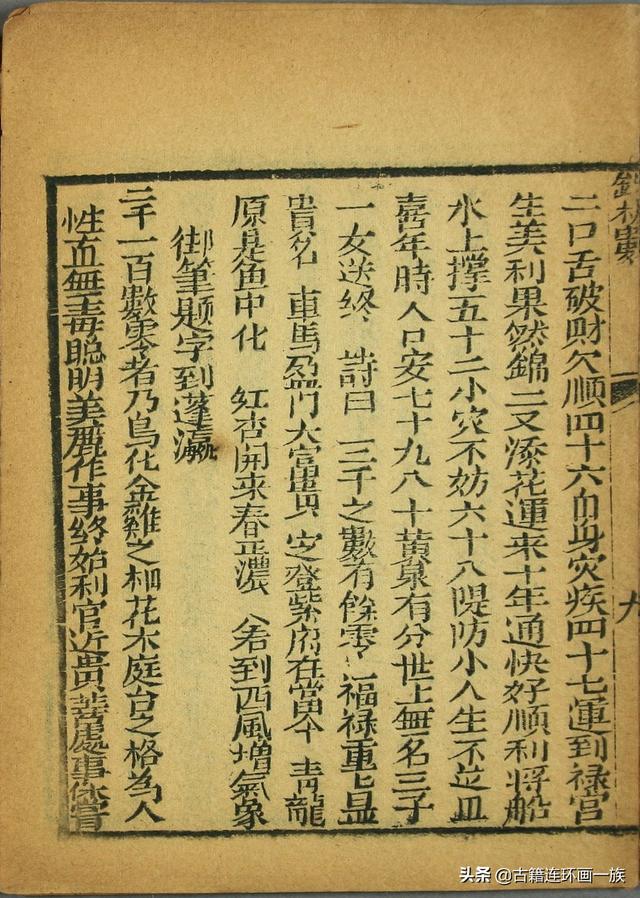 二口舌破財欠順四十六自身灾疾四十七運到祿宮
生美利果然錦上又添花運来十年通快好順利将船
水上撑五十二小灾不妨六十八隄防小人生不並皿
喜年時人口安七十九八十黄泉有分世上無名三子
一女送终 詩曰 二千之數有餘零 福禄重上显
貴名 車馬盈門大富貴 定登紫府在當今 青龍
原是鱼中化 紅杏開来春正濃 若到西風增氣象
御筆题字到蓬瀛
二千一百數零者乃鳥化金雞之相花木庭台之格為人
性直無毒聪明美麗作事终始利官近貴善處事
九
头条 @古籍连环画一族